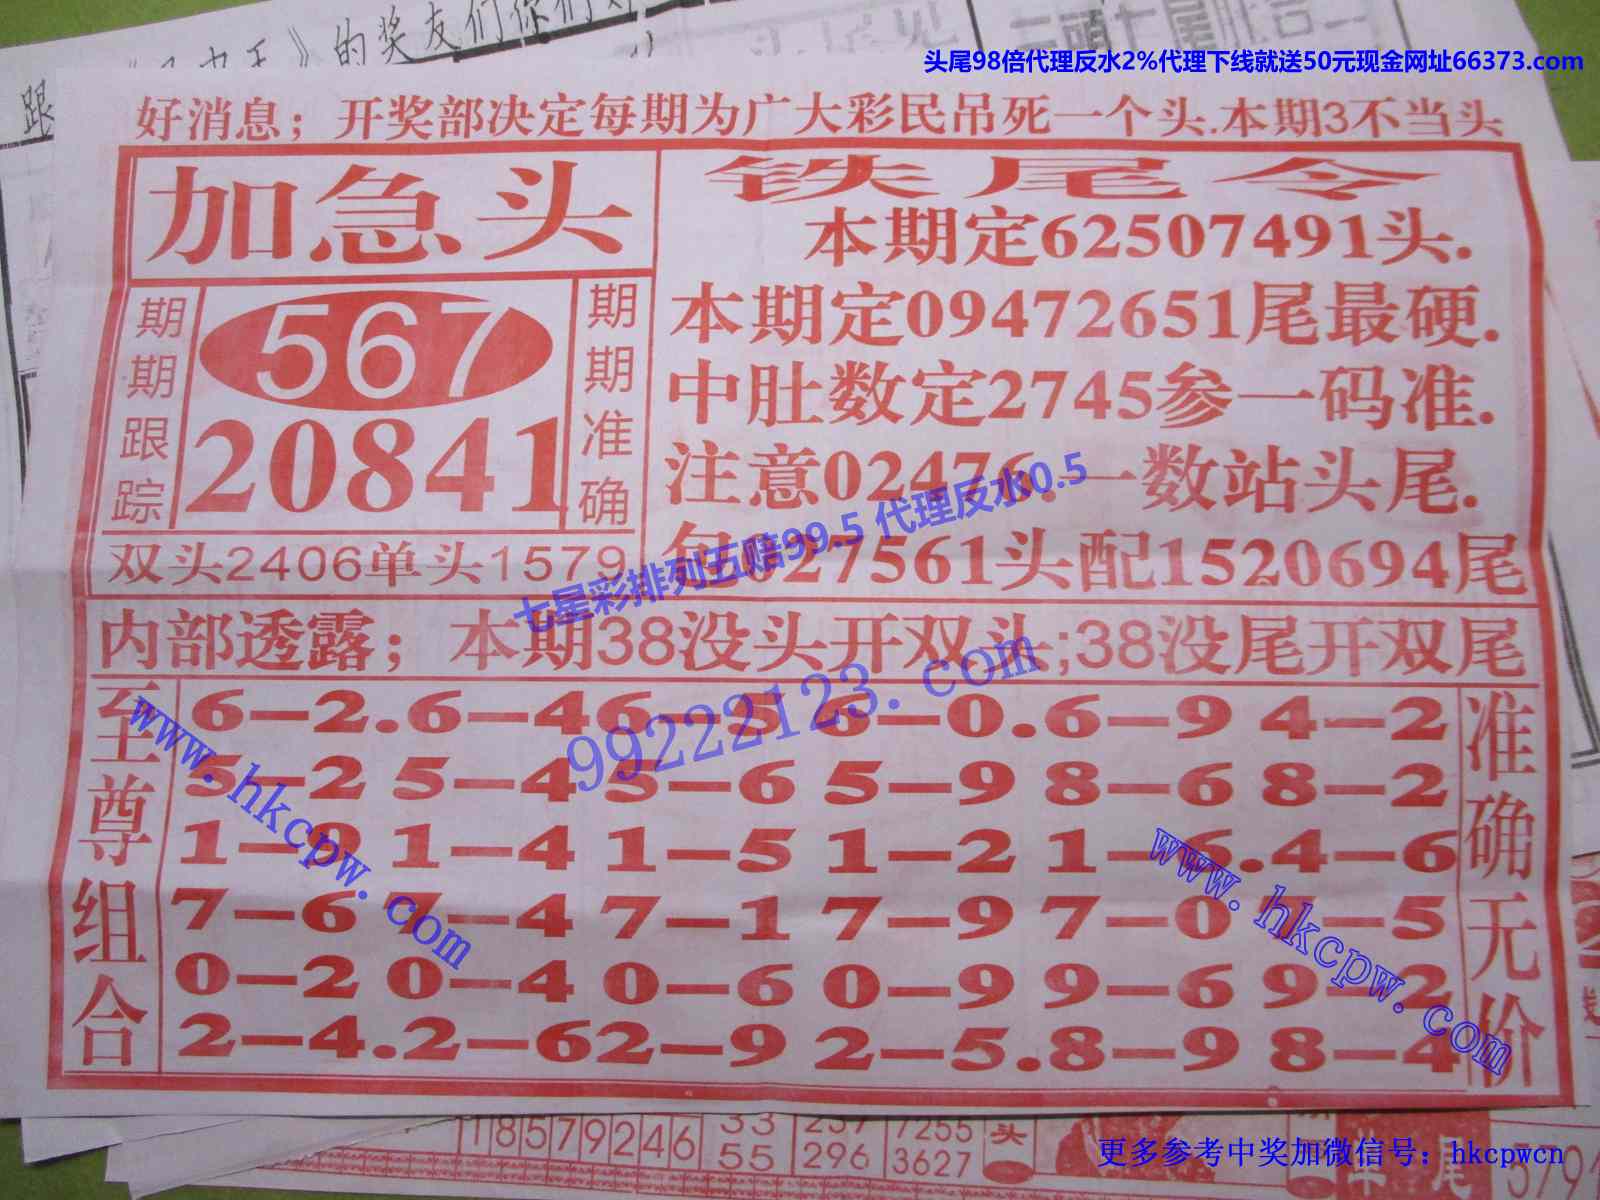 的奖友们你们好
跟
头尾98倍代理反水2%代理下线就送50元现金网址66373.com
好消息；开奖部决定每期为广大彩民吊死一个头.本期3不当头
加急头
期期跟踪
567
20841
期期准确
双头2406单头1579
铁尾令
本期定62507491头.
本期定09472651尾最硬.
中肚数定2745参一码准.
注意02476.一数站头尾.
包027561头配1520694尾
七星彩排列五赔99.5 代理反水0.5
99222123.com
内部透露；本期38没头开双头;38没尾开双尾
至尊组合
6—2.6—46—5 6—0.6—9 4—2
5—2 5—4 5—6 5—9 8—6 8—2
1—9 1—4 1—5 1—2 1—6.4—6
7—6 7—4 7—1 7—9 7—0 7—5
0—2 0—4 0—6 0—9 9—6 9—2
2—4.2—62—9 2—5.8—9 8—4
准确无价
www.hkcpw.com
www.hkcpw.com
18579246
33
55
237
296
7255
3627
头
尾
579
更多参考中奖加微信号：hkcpwcn